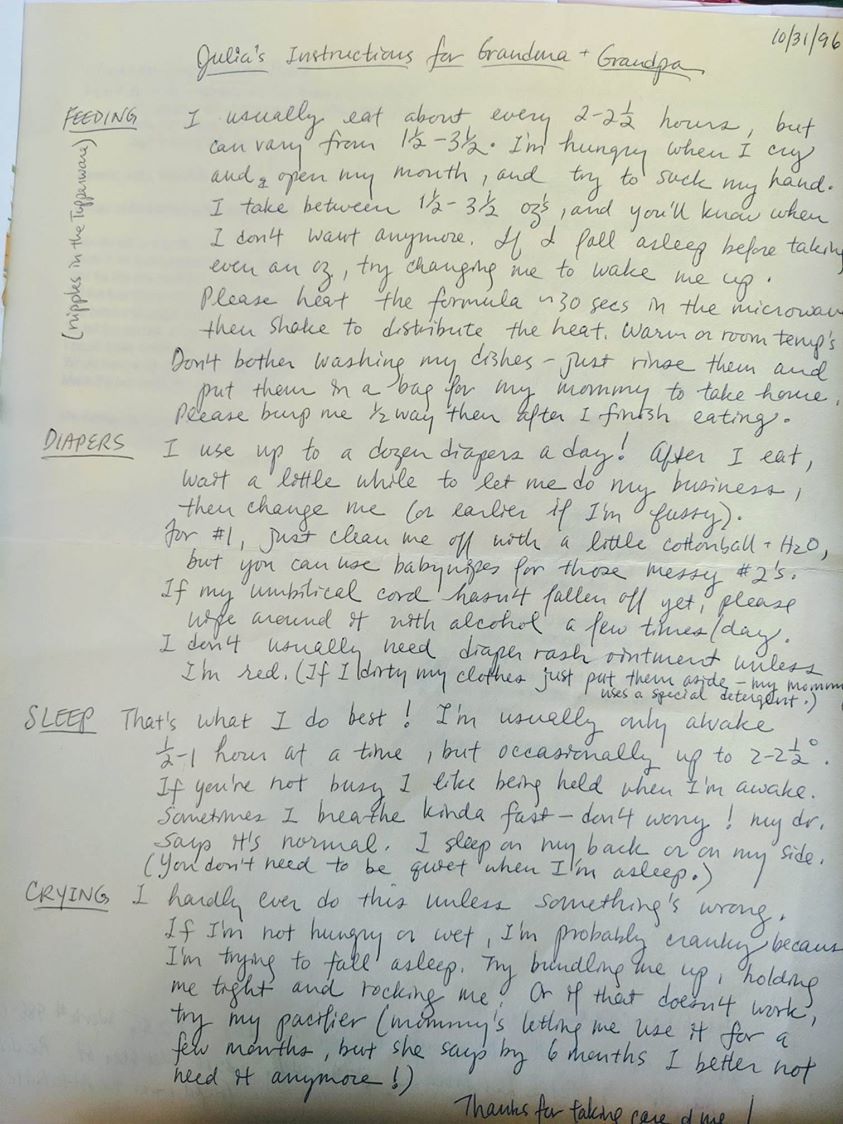 10/31/96
Julia's Instructions for Grandma + Grandpa
FEEDING I usually eat about every 2-2½ hours, but
can vary from 1½-3½. I'm hungry when I cry
and open my mouth, and try to suck my hand.
I take between 1½-3½ oz's, and you'll know when
I don't want anymore. If I fall asleep before taking
even an oz, try changing me to wake me up.
Please heat the formula ~30 secs in the microwav
then shake to distribute the heat. Warm or room temp's
Don't bother washing my dishes - just rinse them and
put them in a bag for my mommy to take home.
Please burp me ½ way then after I finish eating.
(nipples in the Tupperware)
DIAPERS I use up to a dozen diapers a day! After I eat,
wait a little while to let me do my business,
then change me (or earlier if I'm fussy).
For #1, just clean me off with a little cottonball + H2O,
but you can use babywipes for those messy #2's.
If my umbilical cord hasn't fallen off yet, please
wipe around it with alcohol a few times/day.
I don't usually need diaper rash ointment unless
I'm red. (If I dirty my clothes just put them aside - my mommy
uses a special detergent.)
SLEEP That's what I do best! I'm usually only awake
½-1 hour at a time, but occasionally up to 2-2½°.
If you're not busy I like being held when I'm awake.
Sometimes I breathe kinda fast - don't worry! my dr.
says it's normal. I sleep on my back or on my side.
(You don't need to be quiet when I'm asleep.)
CRYING I hardly ever do this unless something's wrong.
If I'm not hungry or wet, I'm probably cranky becaus
I'm trying to fall asleep. Try bundling me up, holding
me tight and rocking me. Or if that doesn't work,
try my pacifier (mommy's letting me use it for a
few months, but she says by 6 months I better not
need it anymore!)
Thanks for taking care of me!